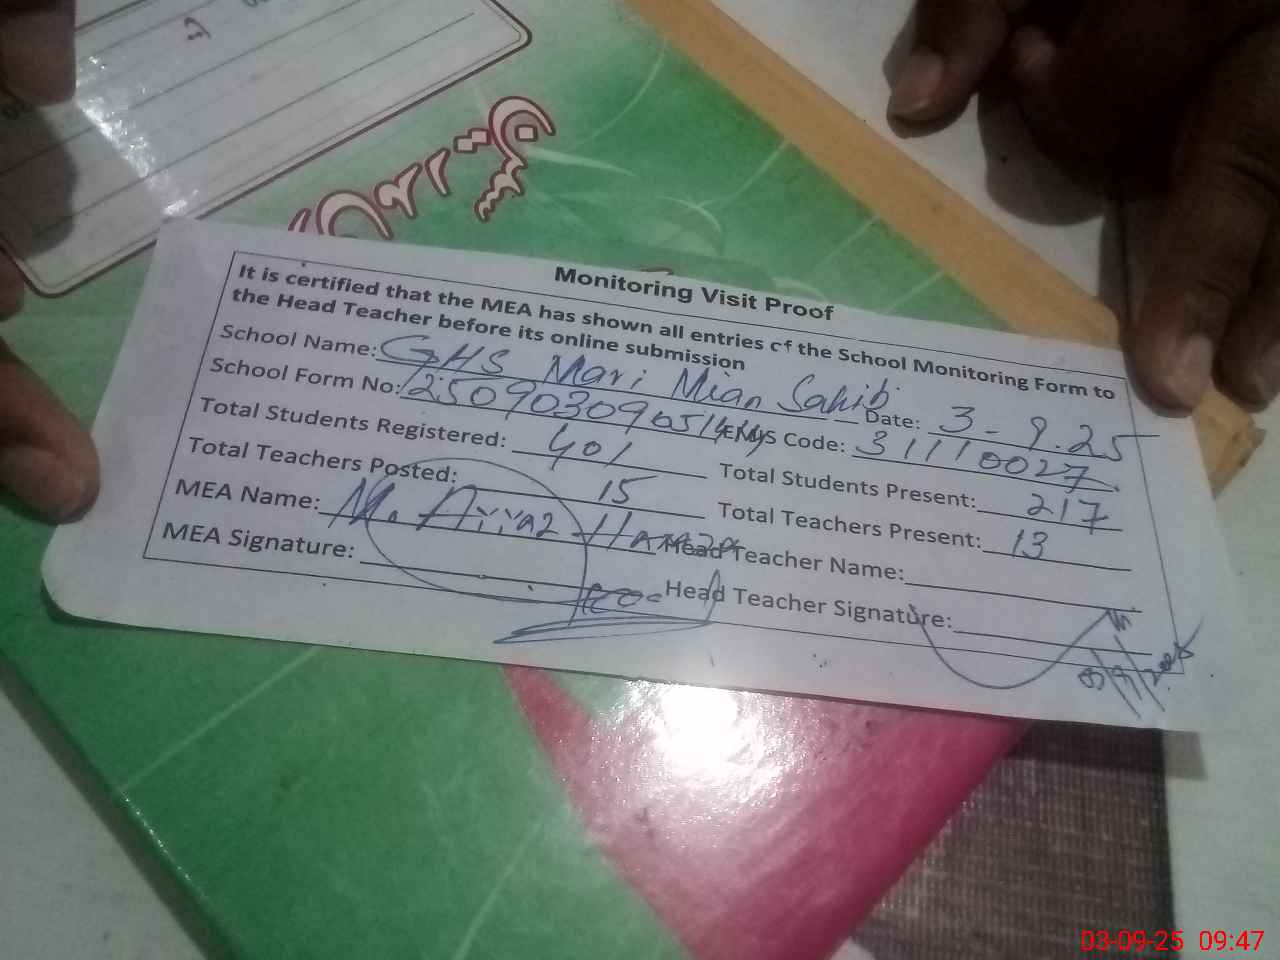 Monitoring Visit Proof
It is certified that the MEA has shown all entries of the School Monitoring Form to
the Head Teacher before its online submission
School Name: GHS Mari Mian Sahib Date: 3-9.25
School Form No: EMIS Code: 31110027
Total Students Registered: 401 Total Students Present: 217
Total Teachers Posted: 15 Total Teachers Present: 13
MEA Name: M. Head Teacher Name:
MEA Signature: Head Teacher Signature:
03-09-25 09:47